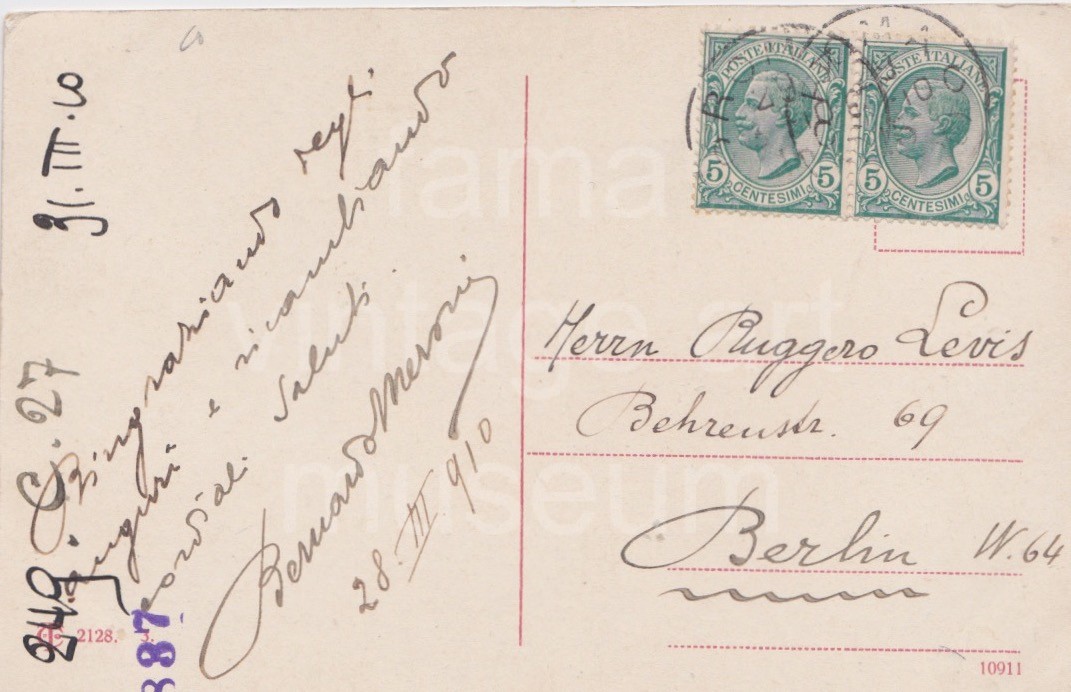 31.III.10
249. C. 27
Ringraziando degli
auguri e ricambiando
cordiali saluti
Bernardo Meroni
28. III. 910
387
2128. 3.
POSTE ITALIANE
5 CENTESIMI 5
POSTE ITALIANE
5 CENTESIMI 5
Herrn Ruggero Levis
Behrenstr. 69
Berlin W.64
10911
fama
vintage art
museum